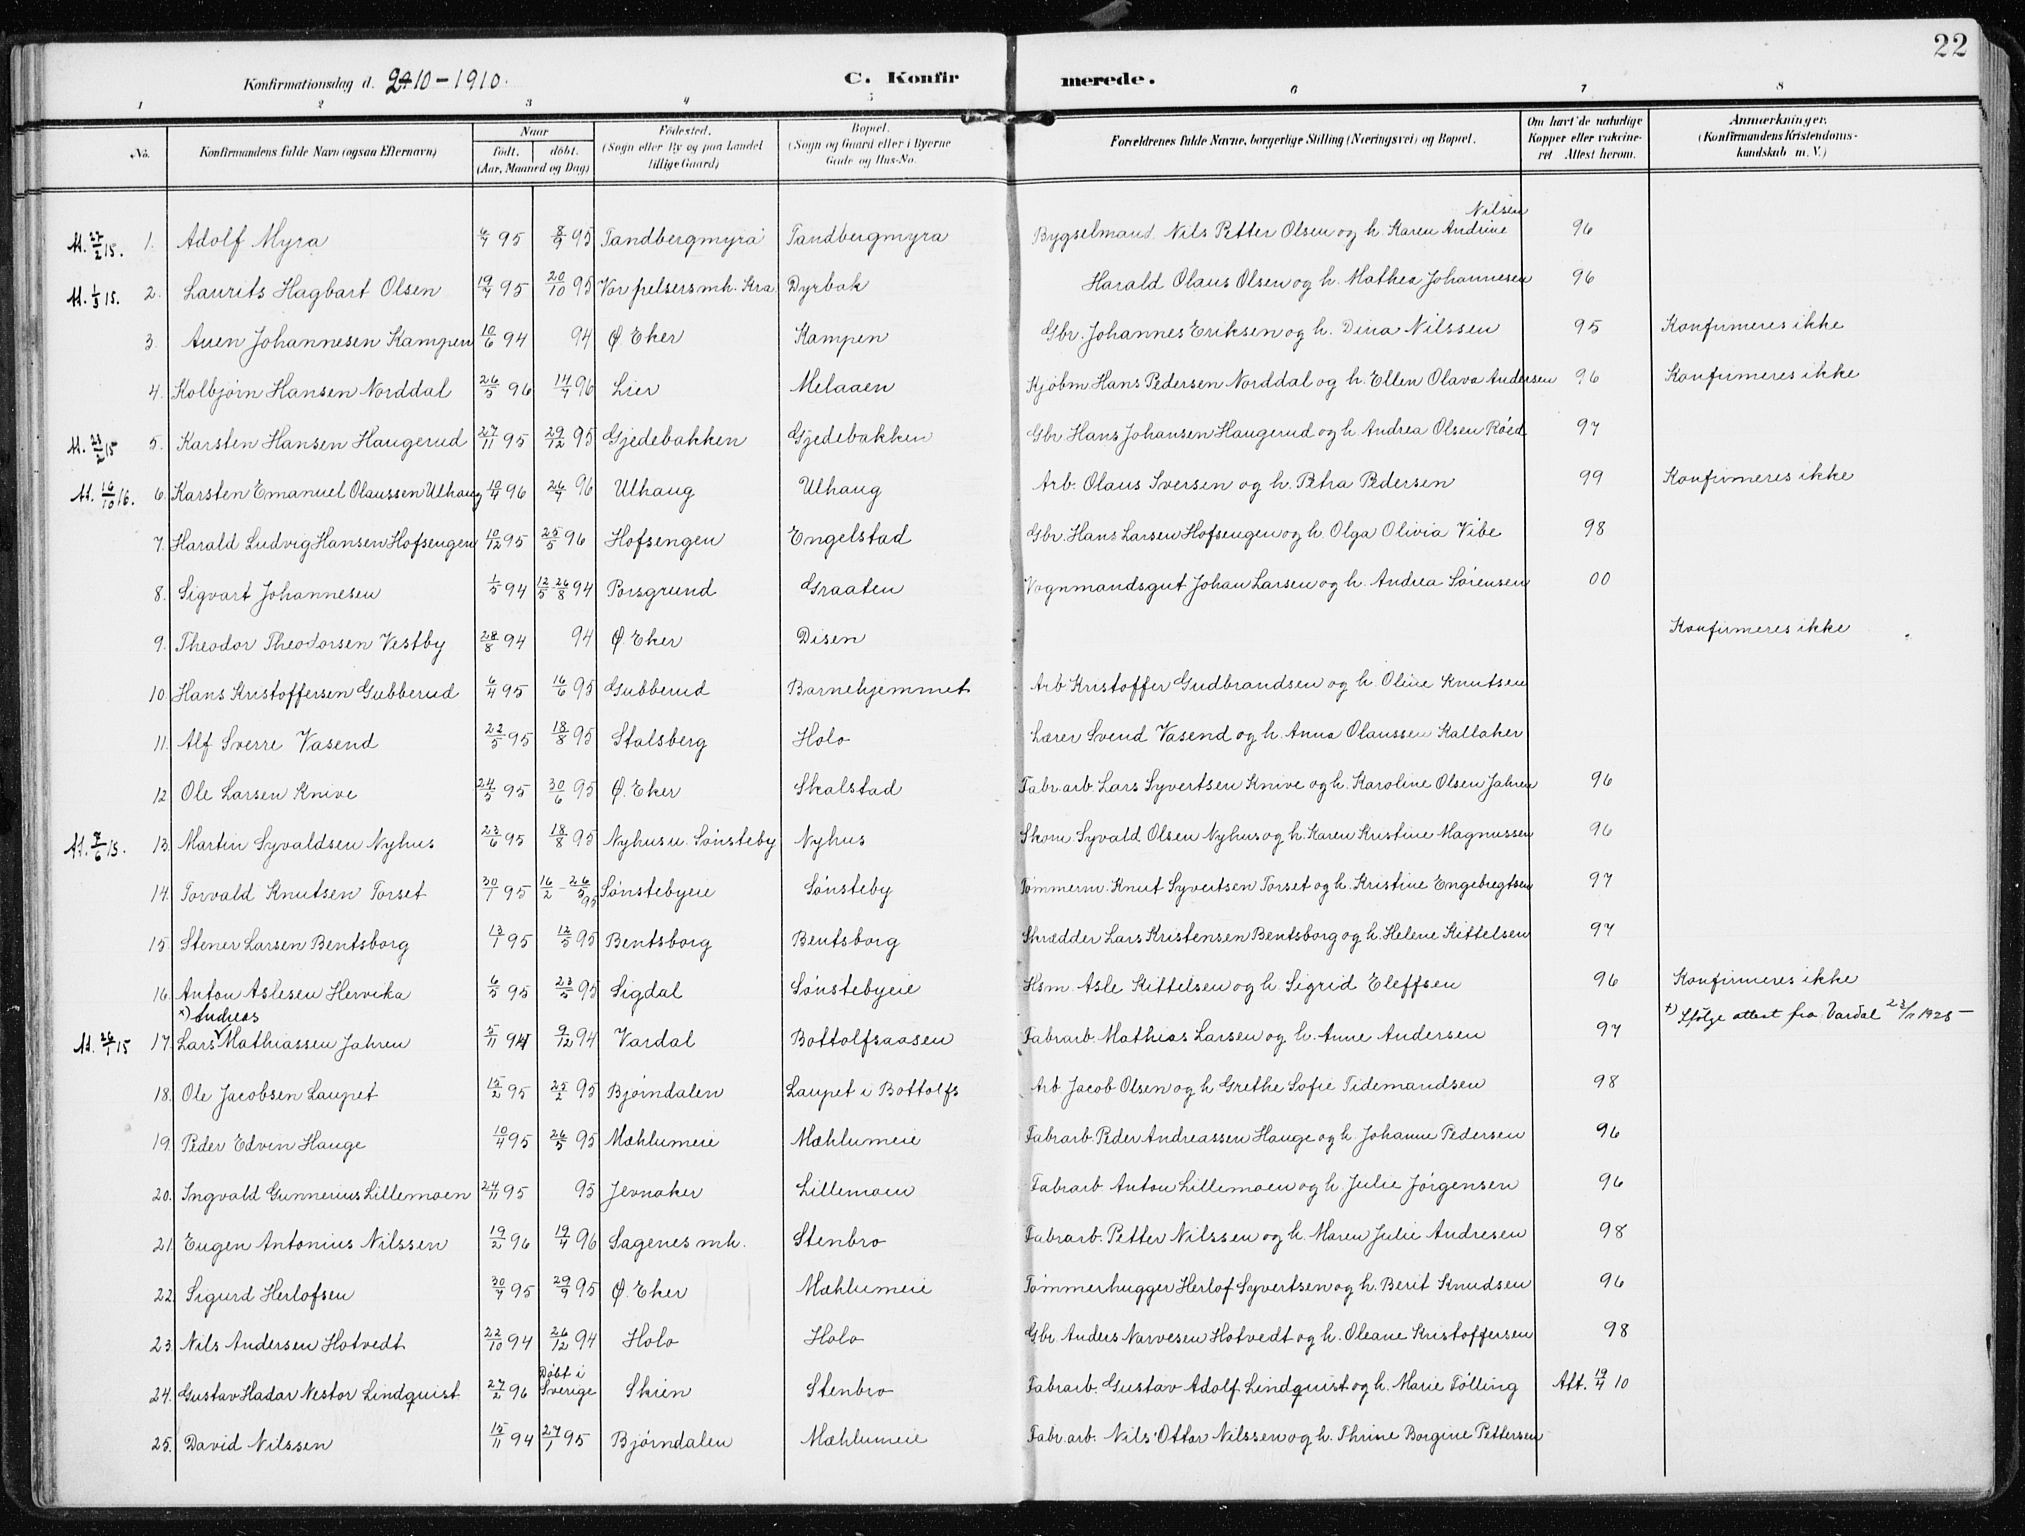 22
Konfirmationsdag d. 9-10-1910. C. Konfirmerede.
1 2 3 4 5 6 7 8
No. Konfirmandens fulde Navn (ogsaa Efternavn) Naar født. døbt. (Aar, Maaned og Dag) Fødested. (Sogn eller By og paa Landet tillige Gaard) Bopæl. (Sogn og Gaard eller i Byerne Gade og Hus-No. Forældrenes fulde Navne, borgerlige Stilling (Næringsvei) og Bopæl. Om havt de naturlige Kopper eller vakcineret. Attest herom. Anmærkninger. (Konfirmandens Kristendomskundskab m. V.)
At. 27/2 15. 1. Adolf Myra 6/7 95 8/9 95 Tandbergmyra Tandbergmyra Bygselmand Nils Petter Olsen og h. Karen Andrine Nilsen 96
At. 1/3 15. 2. Laurits Hagbart Olsen 19/7 95 20/10 95 Vor frelsers mh. Kra Dyrbak Harald Olaus Olsen og h. Mathea Johannesen 96
3. Auen Johannesen Kampen 10/6 94 94 Ø Eker Kampen Gbr. Johannes Eriksen og h. Dina Nilssen 95 Konfirmeres ikke
4. Kolbjørn Hansen Norddal 26/5 96 14/7 96 Lier Melaaen Kjøbm Hans Pedersen Norddal og h. Ellen Olava Andersen 96 Konfirmeres ikke
At. 21/2 15 5. Karsten Hansen Haugerud 27/11 95 29/12 95 Gjedebakken Gjedebakken Gbr. Hans Johansen Haugerud og h. Andrea Olsen Røed 97
At. 16/10 16. 6. Karsten Emanuel Olaussen Ulhaug 10/4 96 26/7 96 Ulhaug Ulhaug Arb. Olaus Iversen og h. Petra Pedersen 99 Konfirmeres ikke
7. Harald Ludvig Hansen Hofsengen 10/12 95 25/5 96 Hofsengen Engelstad Gbr. Hans Larsen Hofsengen og h. Olga Olivia Vibe 98
8. Sigvart Johannesen 1/5 94 12/5 26/8 94 Porsgrund Graaten Vognmandsgut Johan Larsen og h. Andrea Sørensen 00
9. Theodor Theodorsen Vestby 28/8 94 94 Ø. Eker Disen Konfirmeres ikke
10. Hans Kristoffersen Gubberud 6/4 95 16/6 95 Gubberud Barnehjemmet Arb Kristoffer Gudbrandsen og h. Oline Knutsen
11. Alf Sverre Vasend 22/5 95 18/8 95 Stalsberg Holo Lærer Svend Vasend og h. Anna Olaussen Kallaker
12 Ole Larsen Knive 24/5 95 30/6 95 Ø. Eker Skalstad Fabr.arb. Lars Syvertsen Knive og h. Karoline Olsen Jahren 96
At. 7/6 15. 13. Martin Syvaldsen Nyhus 23/6 95 18/8 95 Nyhus u. Sønsteby Nyhus Skom. Syvald Olsen Nyhus og h. Karen Kristine Magnussen 96
14. Torvald Knutsen Torset 30/1 95 16/2 - 26/5 95 Sønstebyeie Sønsteby Tømmerm. Knut Syvertsen Torset og h. Kristine Engebregtsen 97
15. Stener Larsen Bentsborg 13/1 95 12/5 95 Bentsborg Bentsborg Skrædder Lars Kristensen Bentsborg og h. Helene Kittelsen 97
16. Anton Aslesen Hervika 6/5 95 23/5 95 Sigdal Sønstebyeie Hsm. Asle Kittelsen og h. Sigrid Eleffsen 96 Konfirmeres ikke
x) Andreas
At. 26/1 15 17. Lars Mathiassen Jahren 5/11 94 9/12 94 Vardal Bottolfsaasen Fabrarb. Mathias Larsen og h. Anne Andersen 97 x) Ifølge attest fra Vardal 23/11 1925 —
18. Ole Jacobsen Laupet 15/2 95 25/2 95 Bjørndalen Laupet i Bottolfs Arb Jacob Olsen og h Grethe Sofie Tidemandsen 98
19. Peder Edvin Hauge 10/4 95 26/5 95 Mæhlumeie Mæhlumeie Fabrarb. Peder Andreassen Hauge og h. Johanne Pedersen 96
20. Ingvald Gunnerius Lillemoen 24/11 95 95 Jevnaker Lillemoen Fabrarb Anton Lillemoen og h. Julie Jørgensen 96
21 Eugen Antonius Nilssen 19/2 96 19/4 96 Sagenes mh. Stenbro Fabrarb. Petter Nilssen og h. Maren Julie Andresen 98
22. Sigurd Herlofsen 30/7 95 29/9 95 Ø. Eker Mæhlumeie Tømmerhugger Herlof Syvertsen og h. Berit Knudsen 96
23. Nils Andersen Hotvedt 22/10 94 26/12 94 Holo Holo Gbr Anders Narvesen Hotvedt og h. Oleane Kristoffersen 98
24. Gustav Hadar Nestor Lindquist 27/2 96 Døbt i Sverige Skien Stenbro Fabrarb. Gustav Adolf Lindquist og h. Marie Tølling Att. 19/4 10
25. David Nilssen 15/11 94 27/1 95 Bjørndalen Mæhlumeie Fabr.arb. Nils Ottar Nilssen og h. Thrine Borgine Pettersen